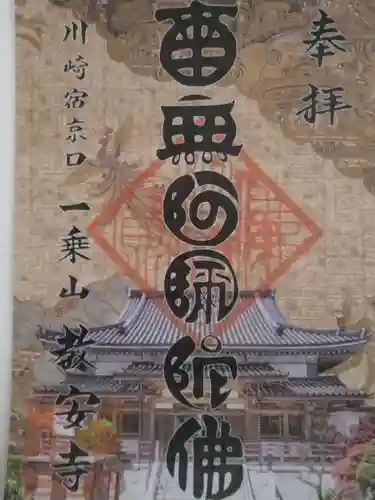 奉拝
南無阿彌陀佛
川崎宿京口 一乗山 教安寺